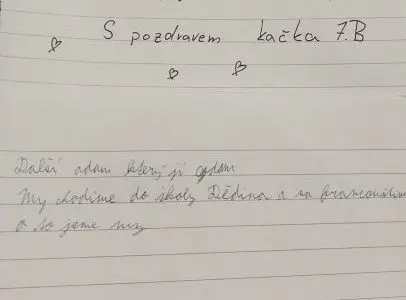 S pozdravem kačka 7.B
Další adam který ji
My chodíme do školy Dědina a na francouštinu
a to jsme my